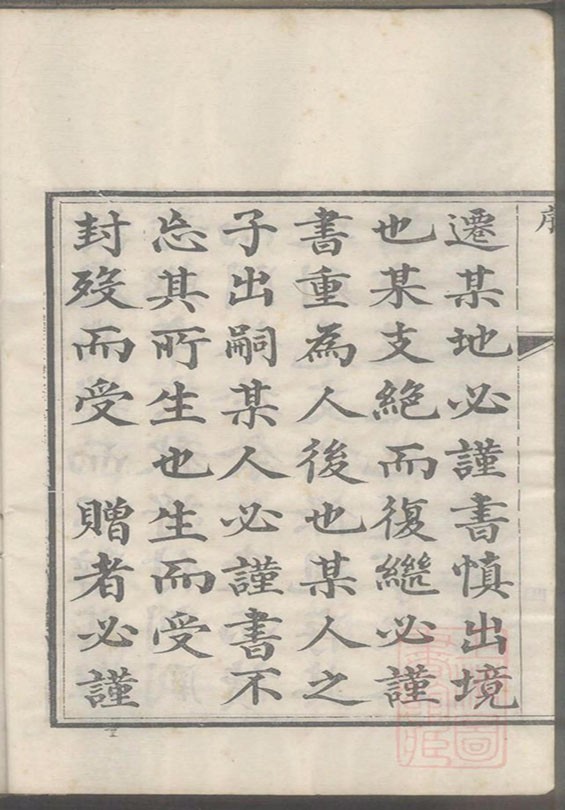 序
遷某地必謹書慎出境
也某支絶而復繼必謹
書重為人後也某人之
子出嗣某人必謹書不
忘其所生也生而受
封歿而受 贈者必謹